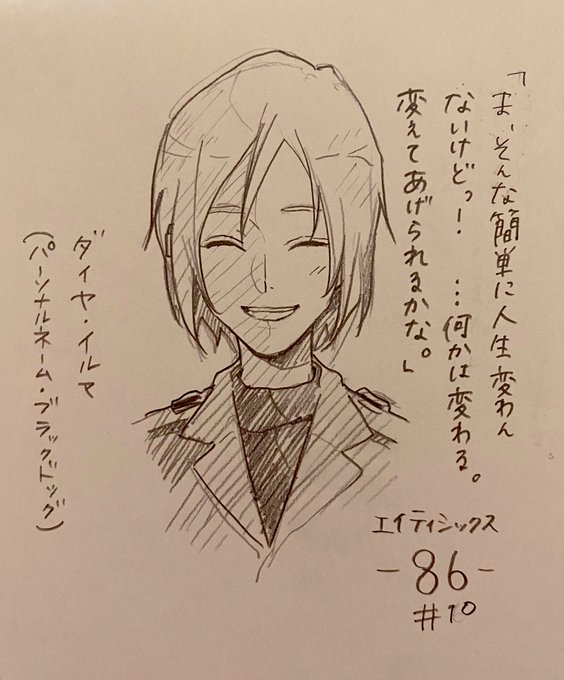 「ま、そんな簡単に人生変わん
ないけどっー! …何かは変わる。
変えてあげられるかな。」
ダイヤ・イルマ
(パーソナルネーム・ブラックドッグ)
エイティシックス
-86-
#10